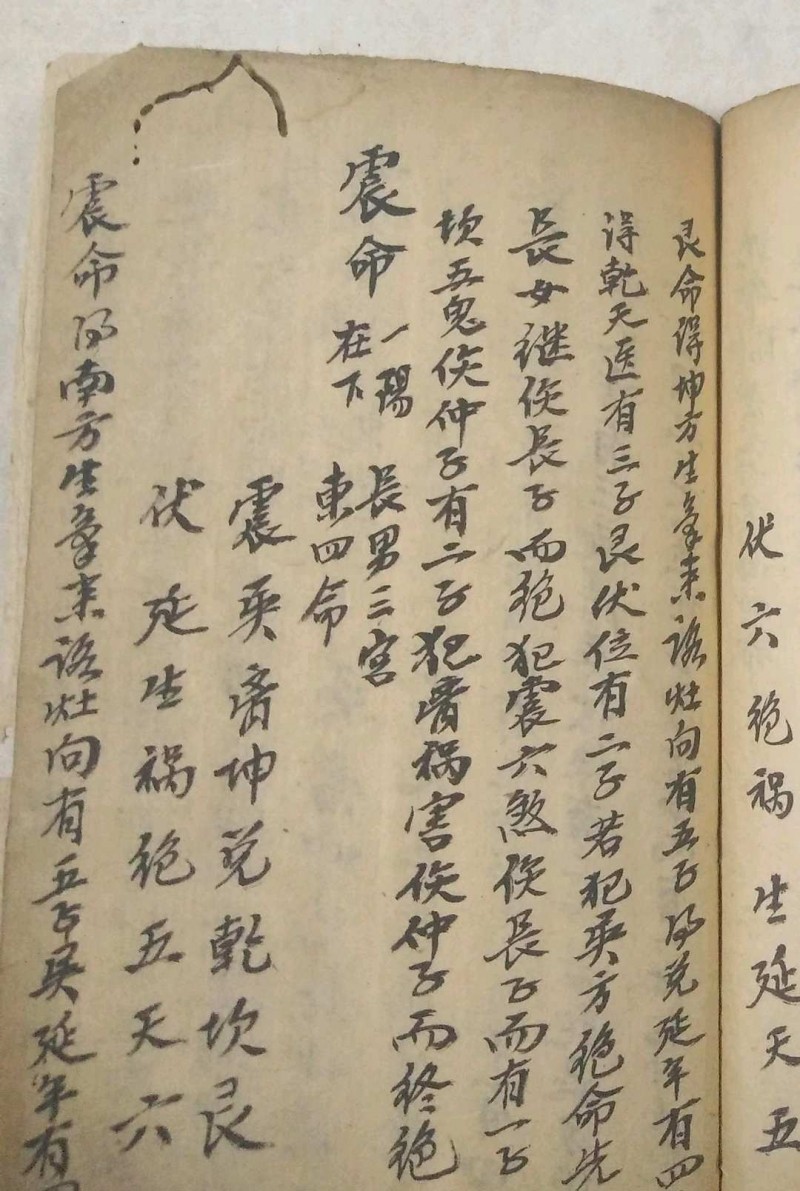 伏六绝祸生延天五
艮命得坤方生氣来路灶向有五子得兑延年有四
得乾天医有三子艮伏位有二子若犯巽方绝命先
長女继俟長子而绝犯震六煞俟長子而有一子
坎五鬼俟仲子有二子犯离祸害俟仲子而终绝
震命
一陽
在下
長男三宫
東四命
震巽离坤兑乾坎艮
伏延生祸绝五天六
震命得南方生氣来路灶向有五子巽延年有四